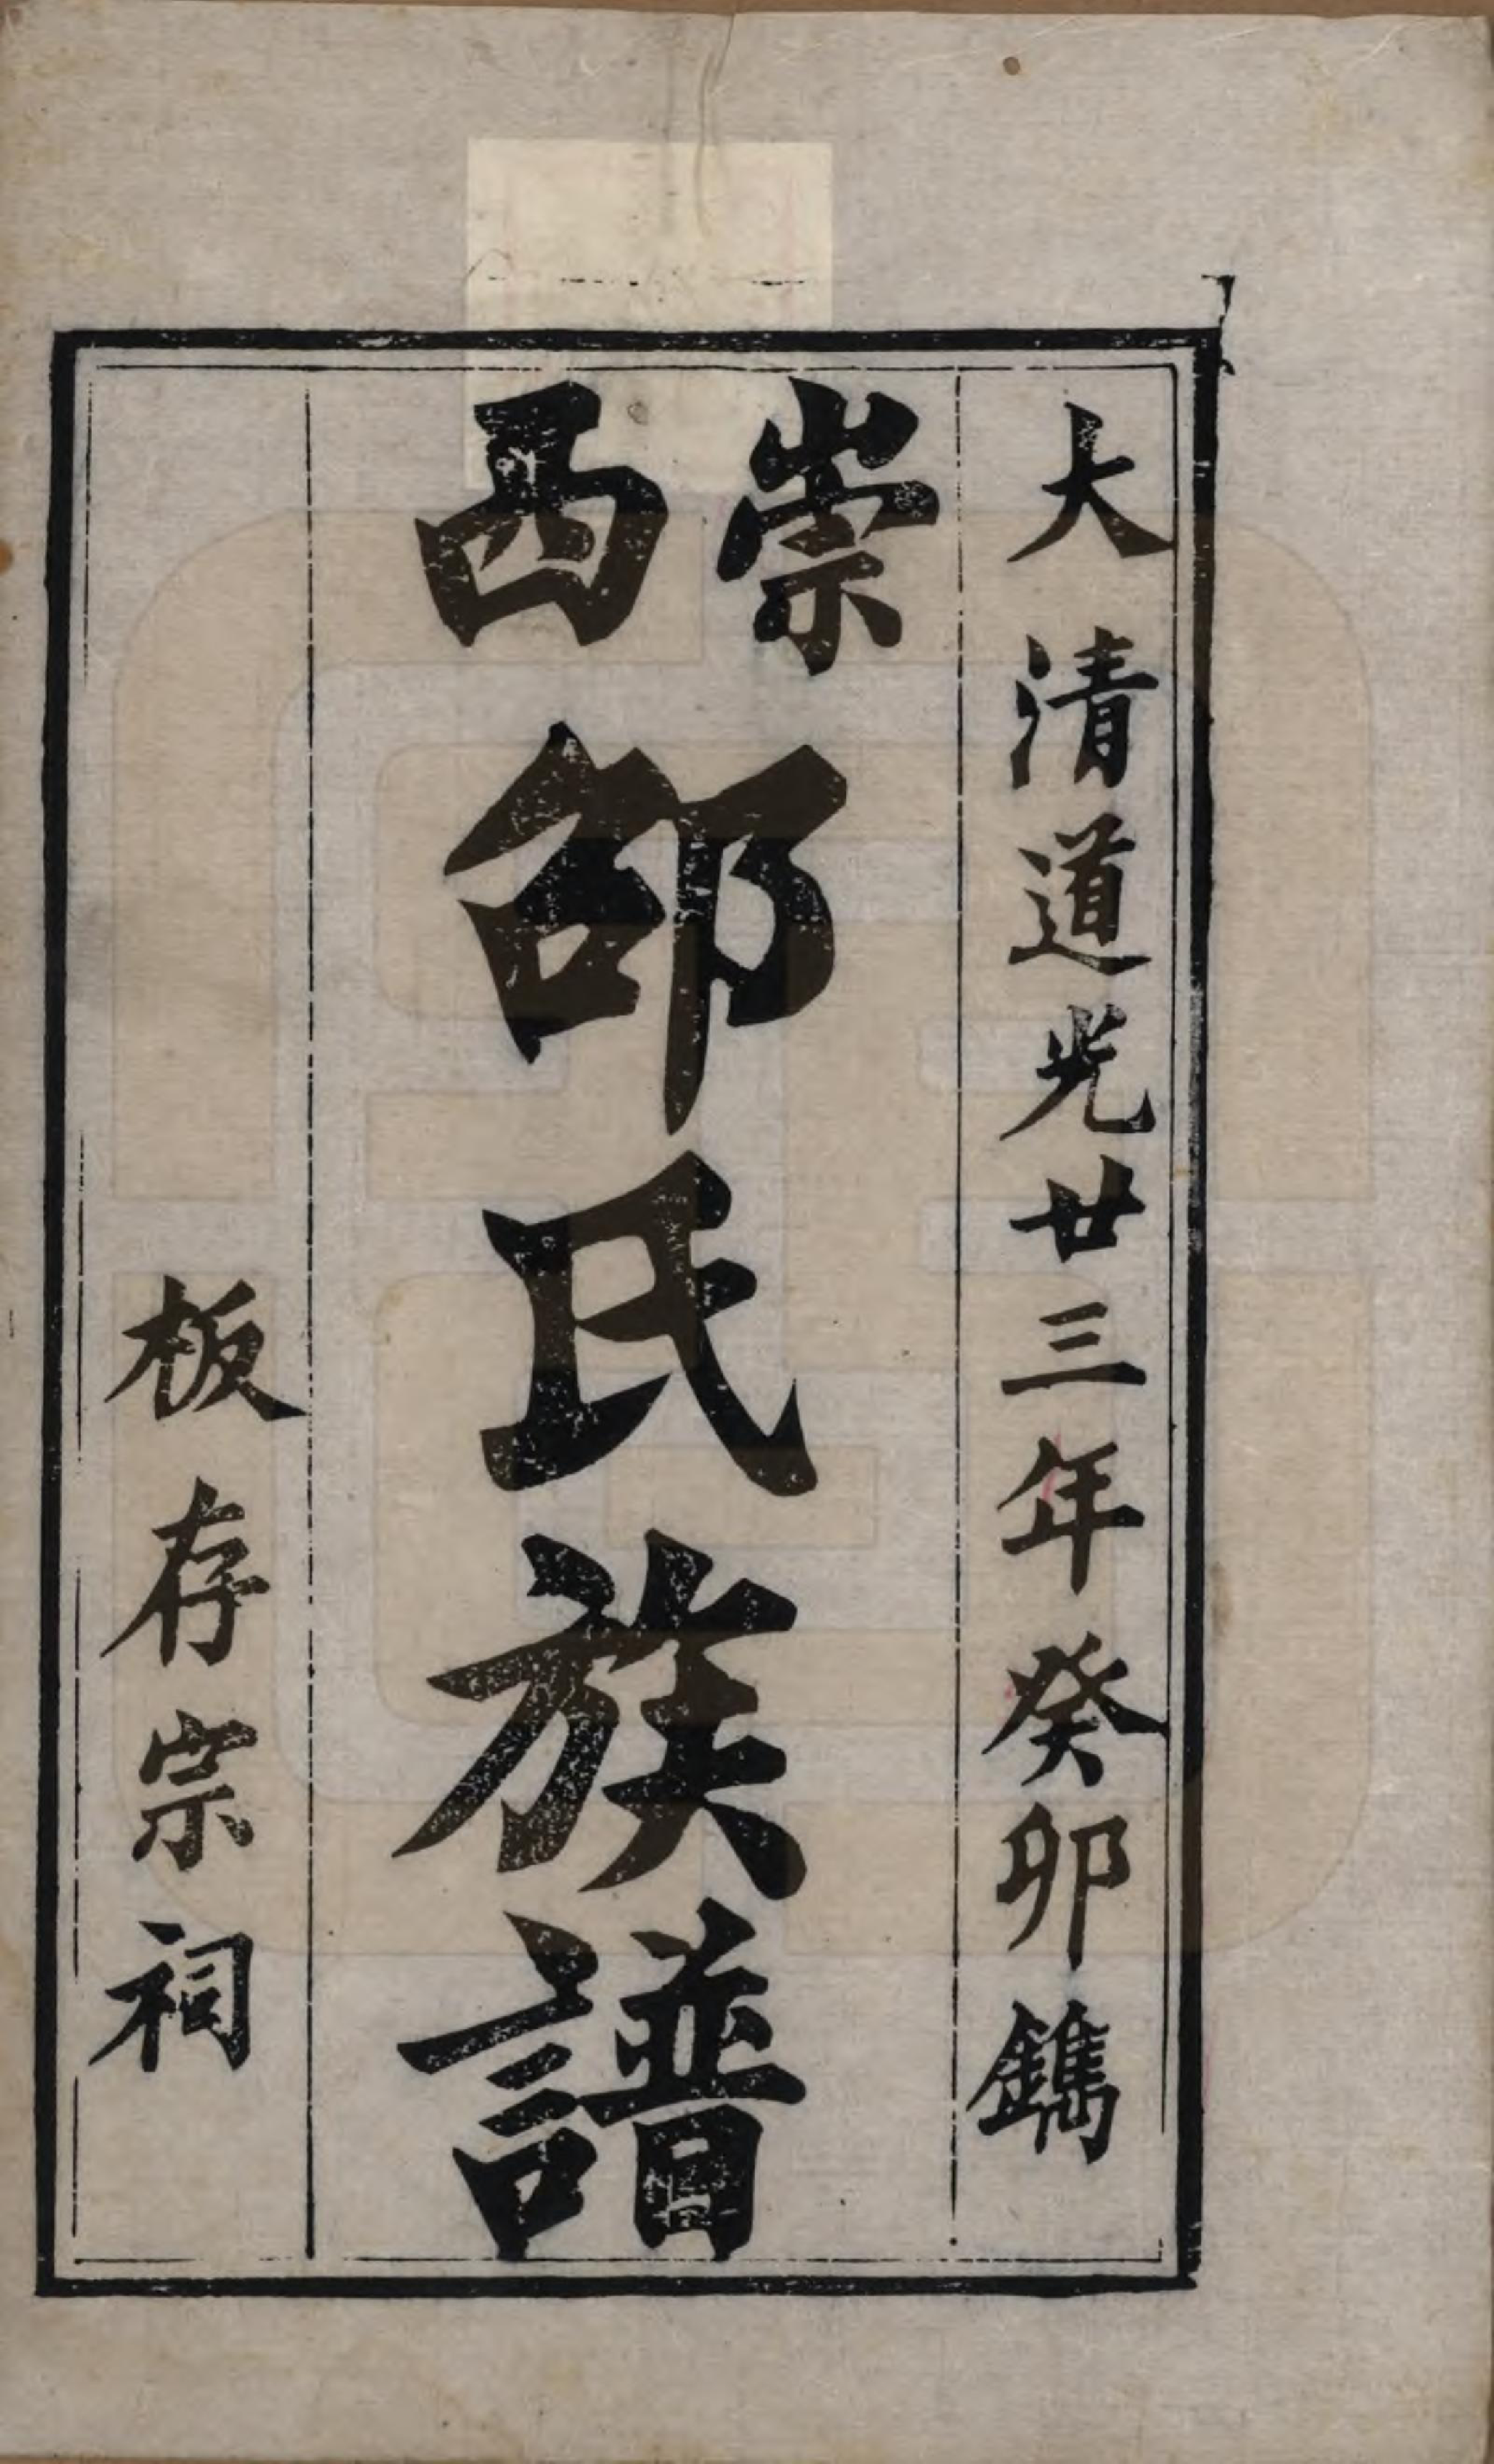 大清道光廿三年癸卯鐫
崇西邵氏族譜
板存宗祠